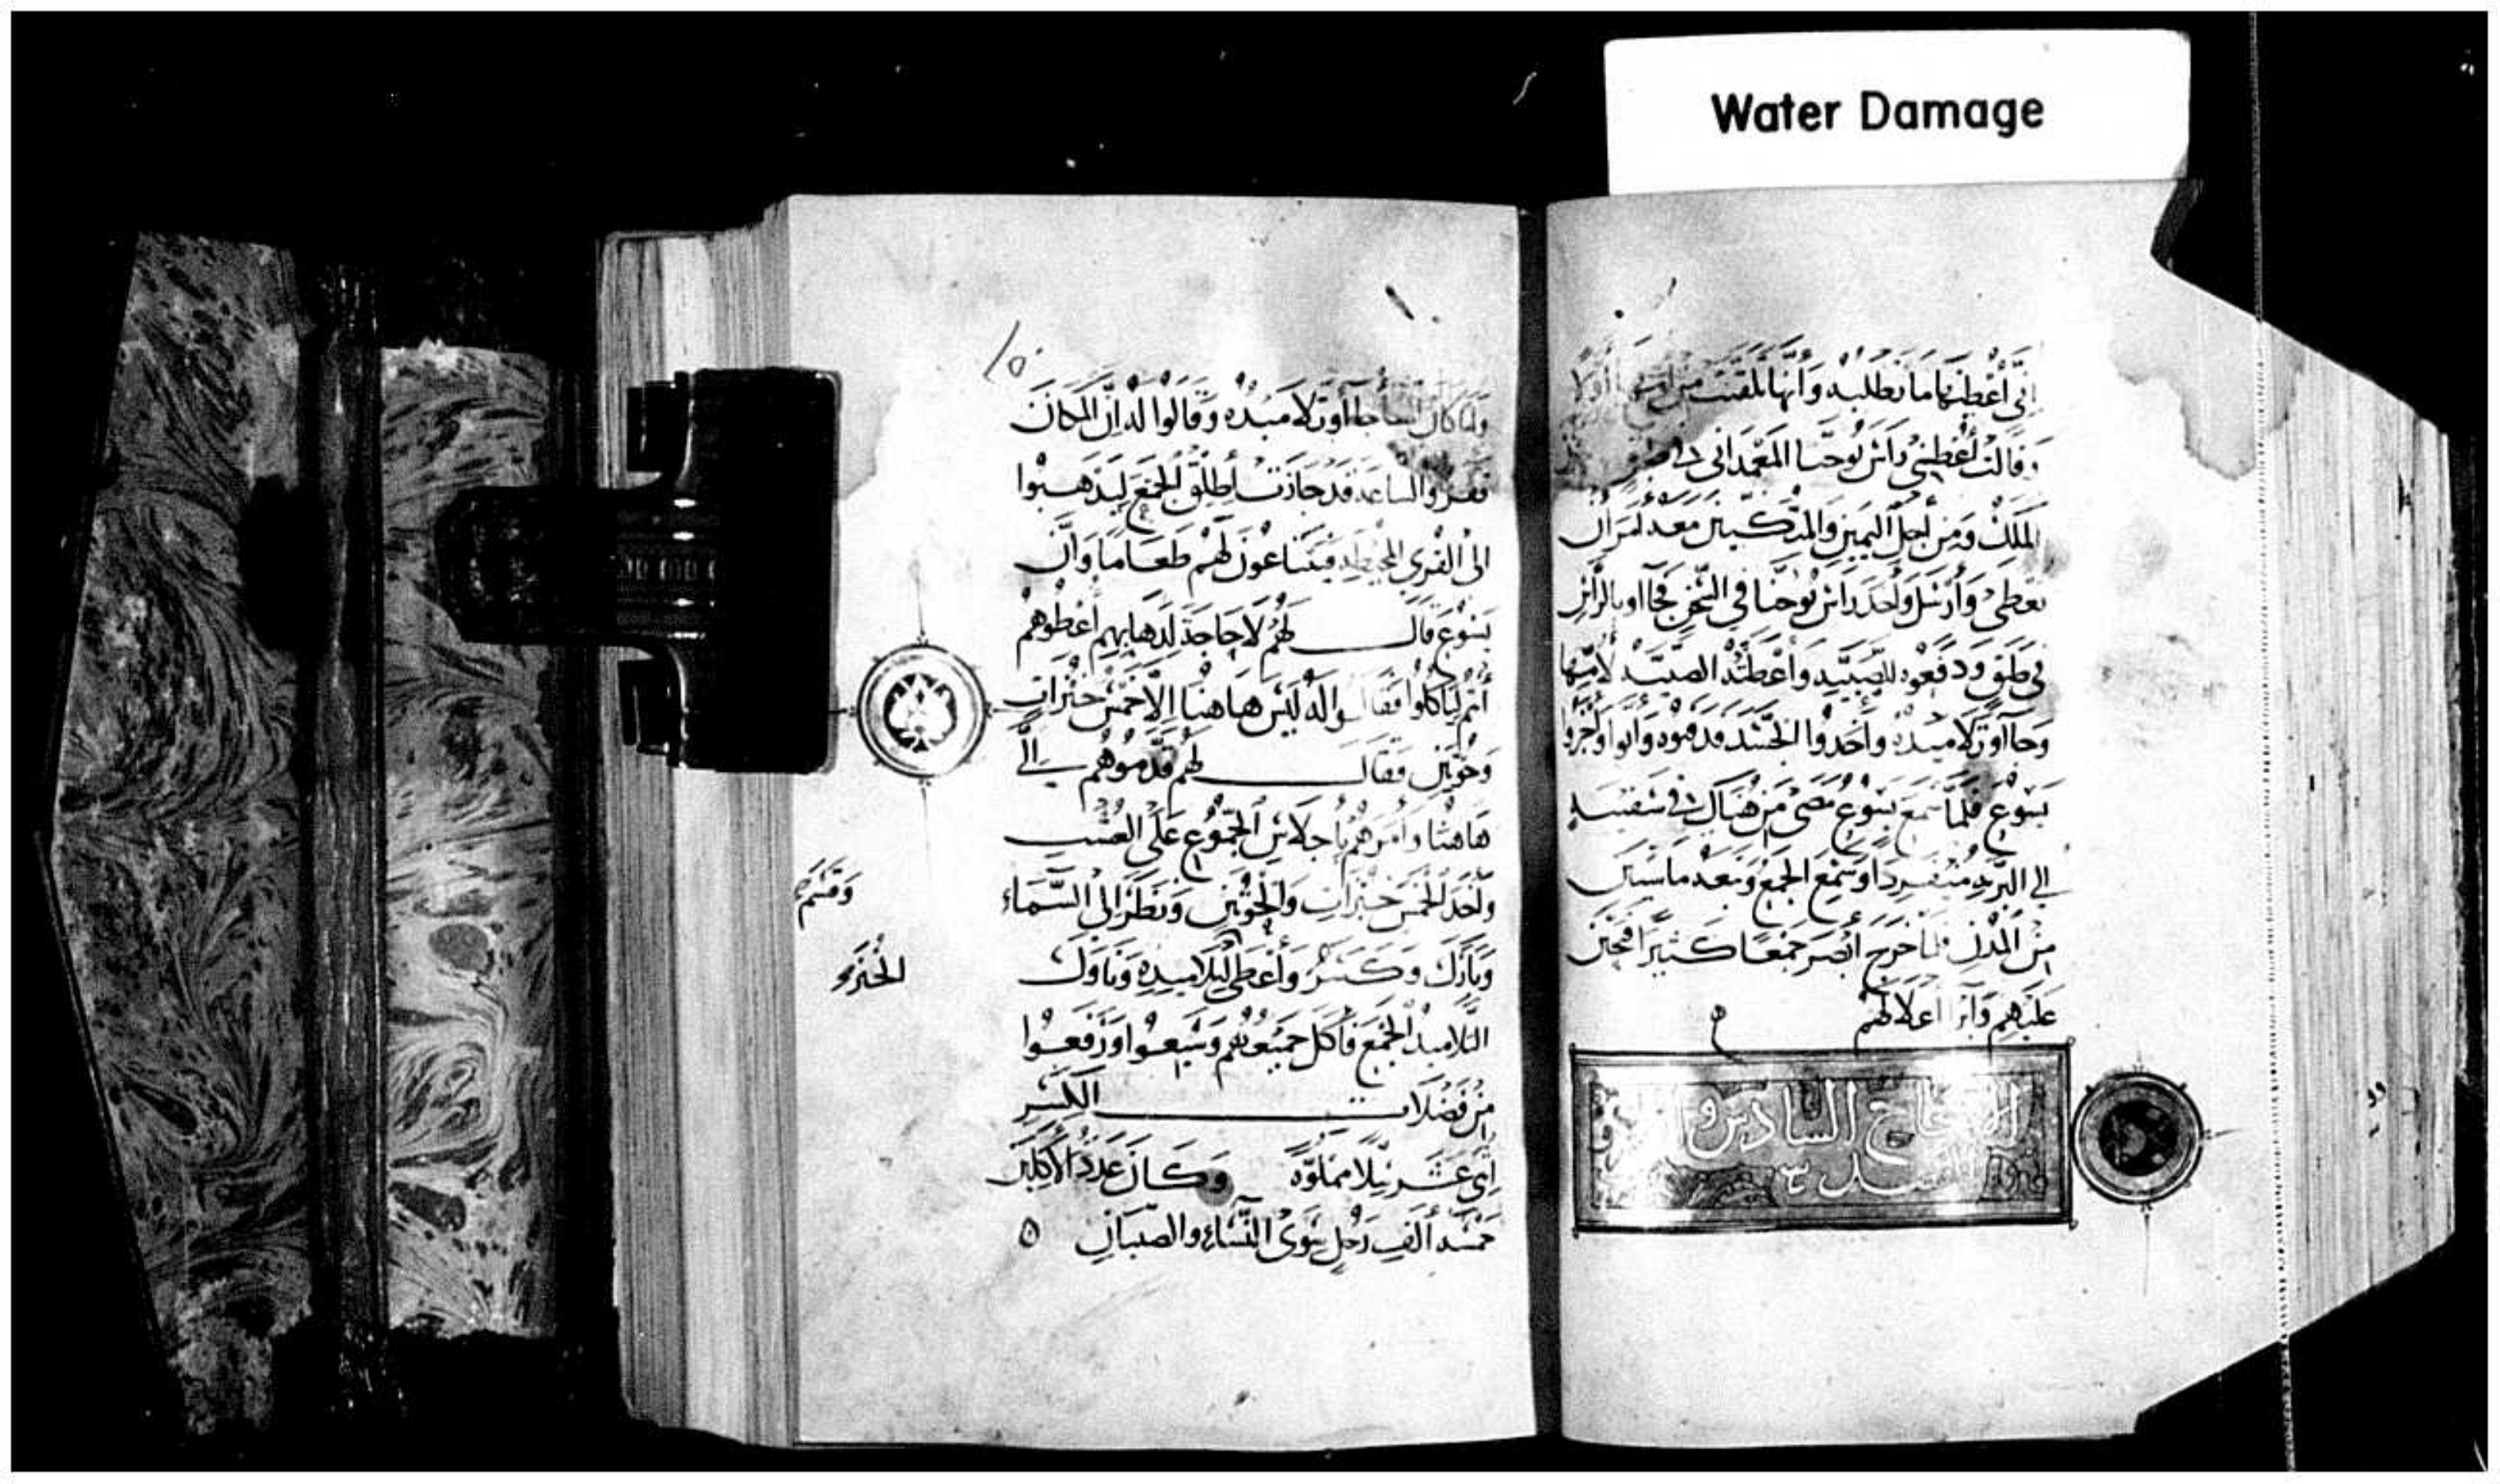 Water Damage
إني أعطيها ما تطلبه وأنها لقنت من أمها أولا
وقالت أعطني رأس يوحنا المعمداني في طبق
الملك ومن أجل اليمين والمتكيين معه أمر أن
تعطى وأرسل وأخذ رأس يوحنا في السجن فجاءوا بالرأس
في طبق ودفعوه للصبية وأعطته الصبية لأمها
وجاءوا تلاميذه وأخذوا الجسد فدفنوه وأتوا وأخبروا
يسوع فلما سمع يسوع مضى من هناك في سفينة
إلى البرية منفردا وسمع الجمع وتبعه ماشيين
من المدن فلما خرج أبصر جمعا كثيرا فتحنن
عليهم وأبرأ أعلالهم
الاصحاح السادس و
الفصل
١٥٠
ولما كان المساء جاءوا تلاميذه وقالوا له إن المكان
قفر والساعة قد جازت أطلق الجمع ليذهبوا
إلى القرى المحيطة فيبتاعون لهم طعاما وأن
يسوع قال لهم لا حاجة لذهابهم أعطوهم
أنتم ليأكلوا فقالوا له ليس هاهنا إلا خمس خبزات
وحوتين فقال لهم قدموهم إلي
هاهنا وأمرهم بإجلاس الجموع على العشب
وأخذ الخمس خبزات والحوتين ونظر إلى السماء
وقسم
وبارك وكسر وأعطى لتلاميذه وناولت
الخبز
التلاميذ الجمع فأكل جميعهم وشبعوا ورفعوا
من فضلات الكسر
اثني عشر زنبيلا مملوة وكان عدد الآكلين
خمسة ألف رجل سوى النساء والصبيان